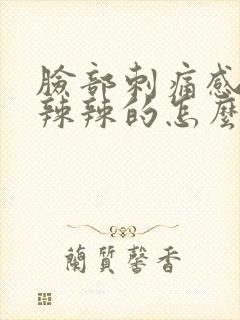 臉部刺痛感
辣辣的怎麼
蘭質馨香